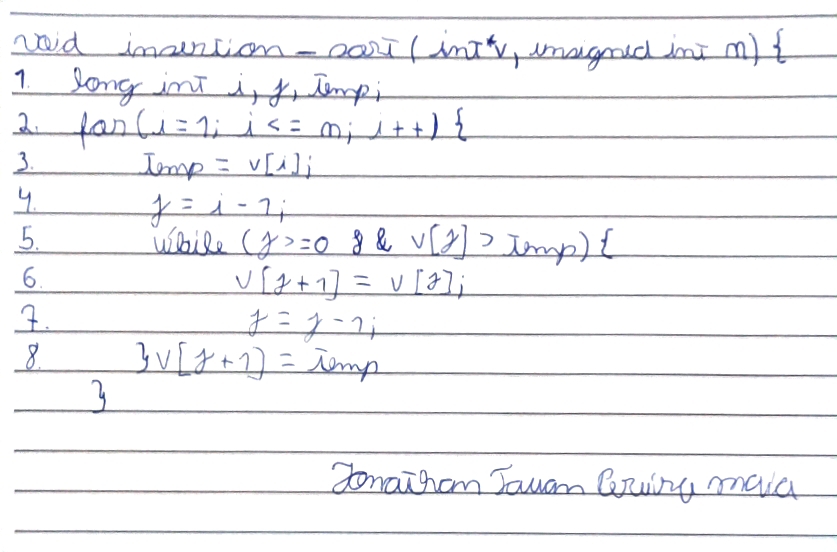 void insertion - sort ( int *v, unsigned int n) {
1. long int i, j, temp;
2. for (i = 1; i <= n; i ++) {
3. Temp = v[i];
4. j = i - 1;
5. while (j >= 0 && v[j] > Temp) {
6. v[j + 1] = v[j];
7. j = j - 1;
8. } v[j + 1] = temp
}
Jonathan Tauan Pereira maia